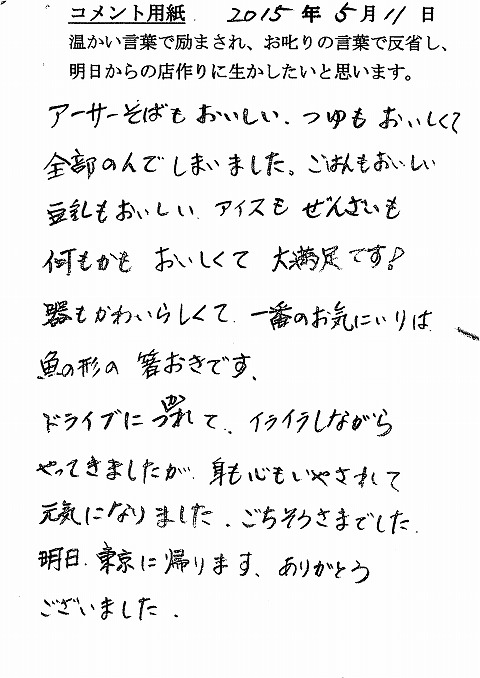 コメント用紙 2015年5月11日
温かい言葉で励まされ、お叱りの言葉で反省し、
明日からの店作りに生かしたいと思います。
アーサーそばもおいしい、つゆもおいしくて
全部のんでしまいました。ごはんもおいしい
豆乳もおいしい、アイスもぜんざいも
何もかもおいしくて大満足です!
器もかわいらしくて、一番のお気にいりは
魚の形の箸おきです、
ドライブにつかれて、イライラしながら
やってきましたが、身も心もいやされて
元気になりました、ごちそうさまでした、
明日、東京に帰ります、ありがとう
ございました、